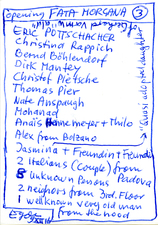 opening FATA MORGANA ③
ERIC POTTSCHACHER
Christina Rappich
Bernd Böhlendorf
Dirk Mantey
Christof Pietsche
Thomas Pier
Nate Anspaugh
Mohanad
Anaïs Hannemeyer + Thilo
Alex from Bolzano
Jasmina + Freundin + Freund
2 Italians (Couple) from
8 unknown Persons Padova
2 neighors from 3rd. Floor
1 wellknown very old man
from the hood
"Quasi adopted daughter"